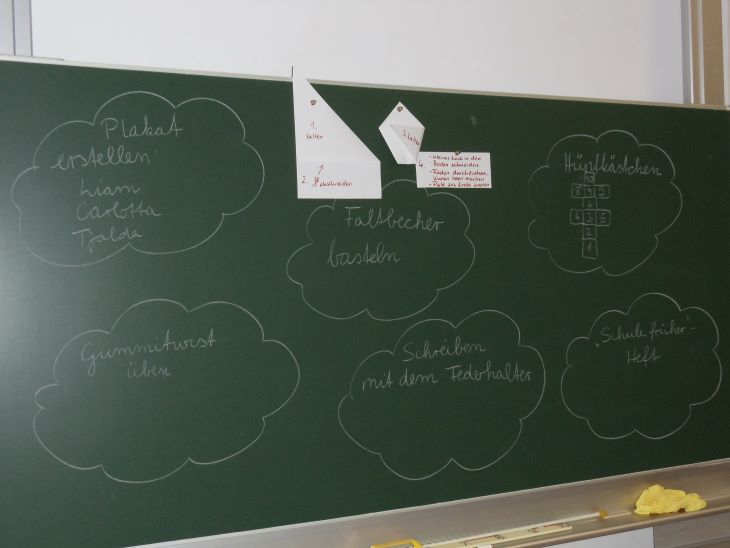 Plakat
erstellen:
Liam
Carlotta
Tjalda
1.
falten
2.
abschneiden
3. falten
4.
- kleines Loch in den
Boden schneiden
- Faden durchziehen,
Knoten innen machen
- Perle ans Ende knoten
Faltbecher
basteln
Hüpfkästchen
10
8 7 9
6
4 3 5
2
1
Gummitwist
üben
Schreiben
mit dem Federhalter
"Schule früher"-
Heft